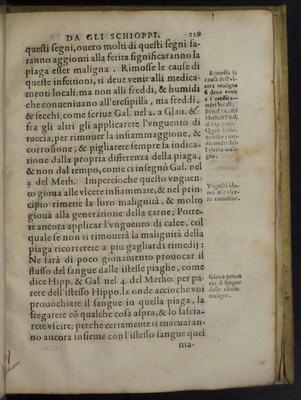 DA GLI SCHIOPPI. 229
questi segni, ouero molti di questi segni sa-
ranno aggionti alla ferita significaranno la
piaga esser maligna. Rimosse le cause di
queste infettioni, si deue venir alli medica-
menti locali, ma non alli freddi, & humidi
che conueniuano all'eresipilla, ma freddi,
& secchi, come scriue Gal. nel 2. a Glau. &
fra gli altri gli applicarete l'vnguento di
tuccia, per rimouer la infiammaggione, &
corrosione, & pigliarete sempre la indica-
tione dalla propria differenza della piaga,
& non dal tempo, come ci insegnò Gal. nel
3. del Meth. Impercioche questo vnguen-
to gioua alle vlcere infiammate, & nel prin-
cipio rimette la loro malignità, & molto
gioua alla generatione della carne, Potre-
te ancora applicar l'vnguento di calce. col
quale se non si rimouerà la malignità della
piaga ricorrerete a piu gagliardi rimedij:
Ne sarà di poco giouamento prouocar il
flusso del sangue dalle istesse piaghe, come
dice Hipp. & Gal. nel 4. del Metho. per pa-
rere dell'istesso Hippo. la onde accioche voi
prouochiate il sangue in quella piaga, la
fregarete cō qualche cosa aspra, & lo lascia-
rete vscire; perche certamente si euacuaran-
no ancora insieme con l'istesso sangue quei
ma-
Rimossa la
causa dell'vl-
cera maligna
si deue venir
a i medica-
mēti locali;
Vnguēti ido-
nei alle vlce-
re
Gioua prouo
car il sangue
dalle vlcere
maligne.